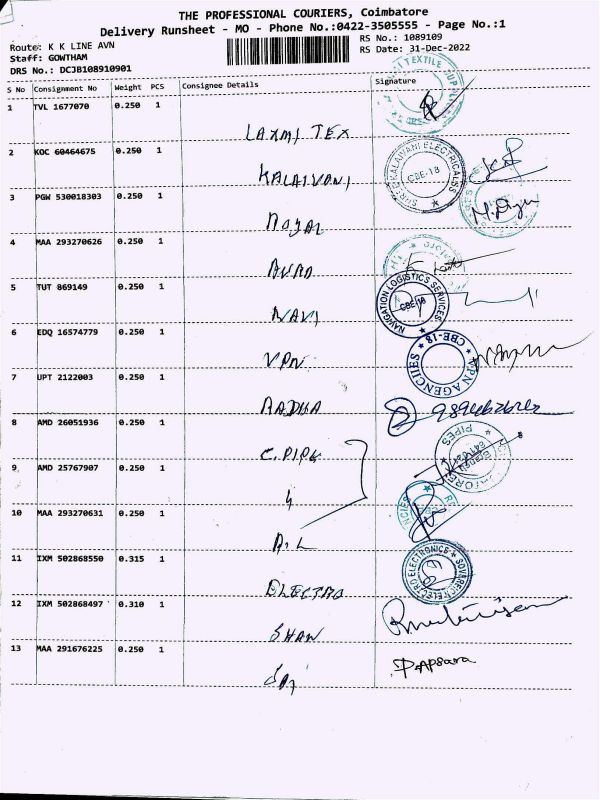 THE PROFESSIONAL COURIERS, Coimbatore
Delivery Runsheet - MO - Phone No.:0422-3505555 - Page No.:1
Route: K K LINE AVN
RS No.: 1089109
Staff: GOWTHAM
RS Date: 31-Dec-2022
DRS No.: DCJB108910901
S No Consignment No Weight PCS Consignee Details Signature
1 TVL 1677070 0.250 1
LAXMI TEX
2 KOC 60464675 0.250 1
KALAIVANI
SURI KALAIVANI ELECTRICALS
CBE-18
3 PGW 530018303 0.250 1
ROYAL
4 MAA 293270626 0.250 1
5 TUT 869149 0.250 1
NAVI
NAVIGATION LOGISTICS SERVICES
CBE-18
6 EDQ 16574779 0.250 1
VPN
VPN AGENCIIES
CBE-18
7 UPT 2122003 0.250 1
RADHA
8 AMD 26051936 0.250 1
C. PIPE
PIPES
9 AMD 25767907 0.250 1
10 MAA 293270631 0.250 1
11 IXM 502868550 0.315 1
ELECTRO
ELECTRONICS
12 IXM 502868497 0.310 1
SHAN
13 MAA 291676225 0.250 1
SAI
P. Apsara